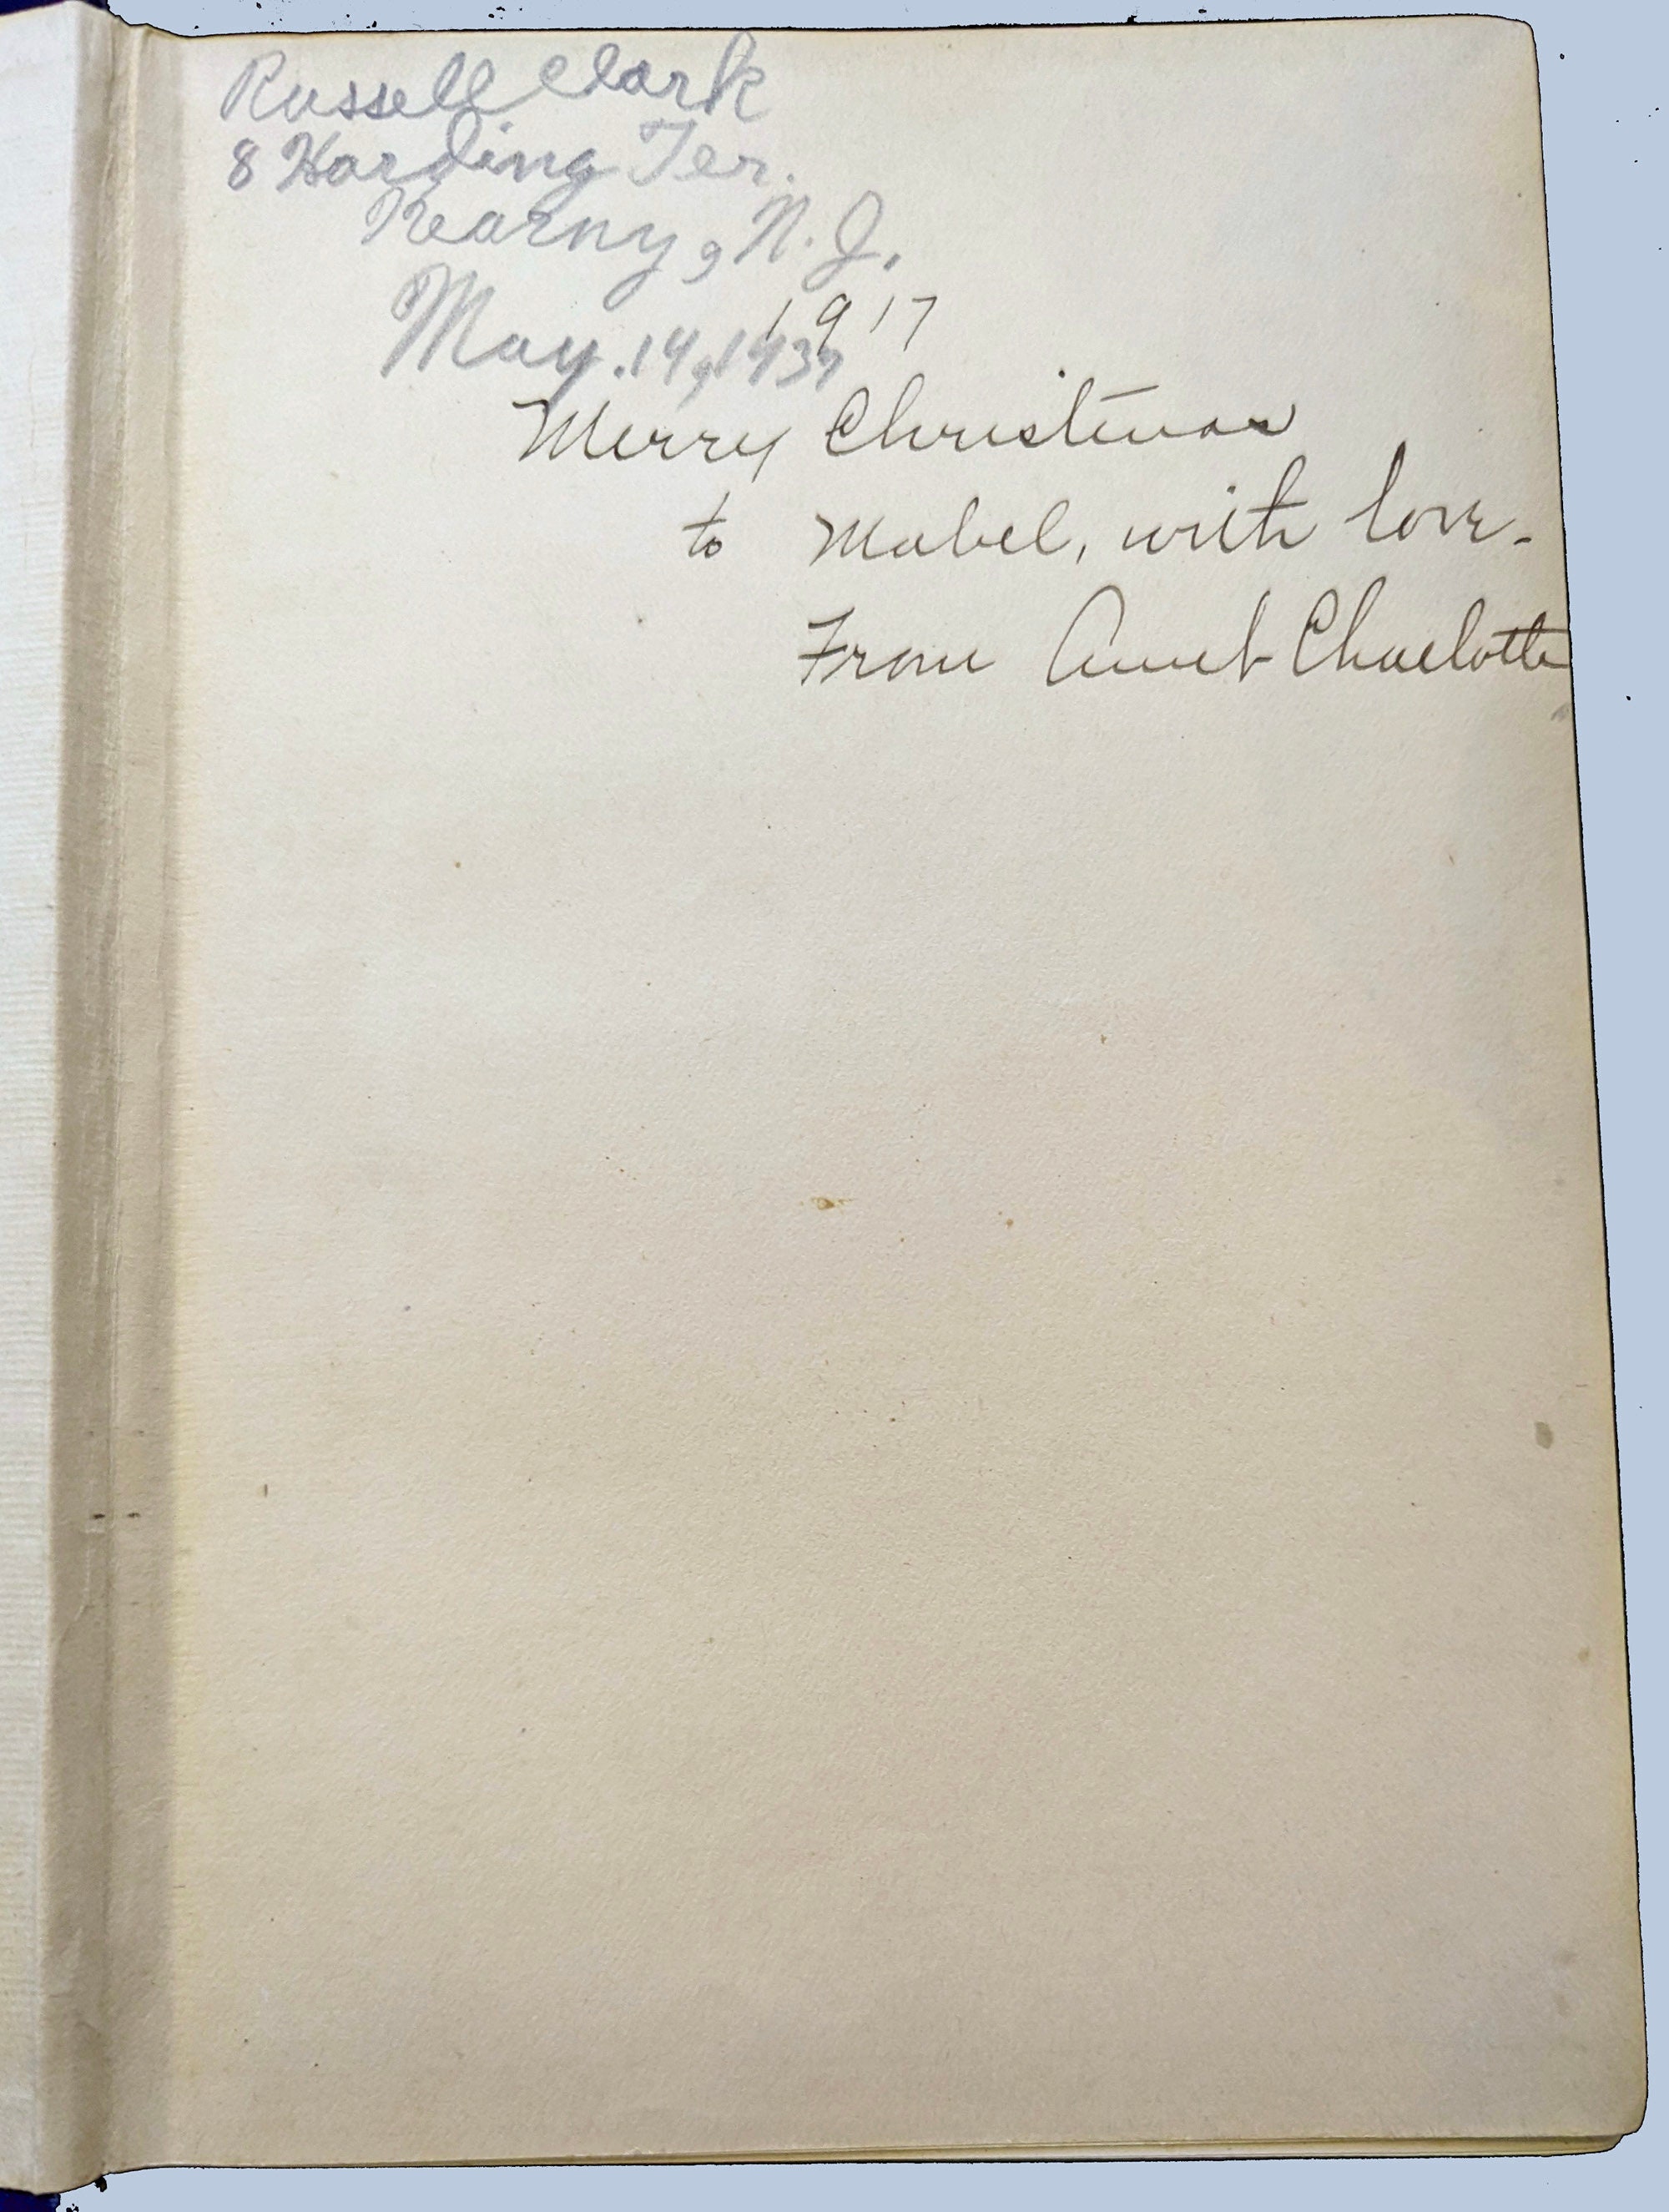 Russell Clark
8 Harding Ter.
Kearny, N.J.
May. 14, 1937
1917
Merry Christmas
to Mabel, with love.
From Aunt Charlotte